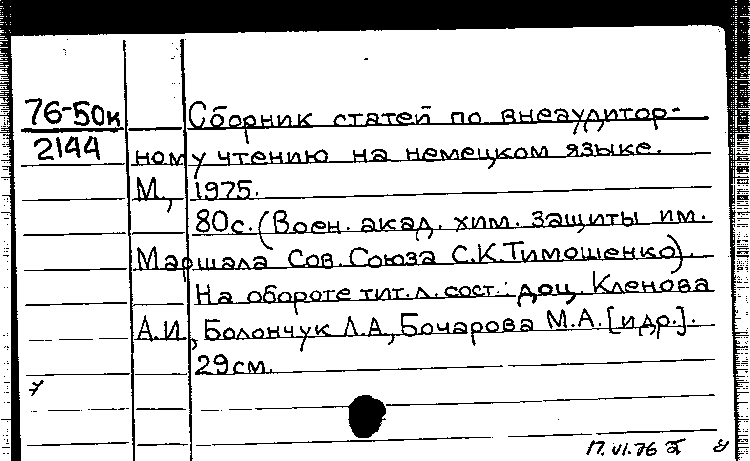 76-50к
2144
Сборник статей по внеаудитор-
ному чтению на немецком языке.
М., 1975.
80с. (Воен. акад. хим. защиты им.
Маршала Сов. Союза С.К.Тимошенко).
На обороте тит. л. сост.: доц. Кленова
А.И., Болончук Л.А., Бочарова М.А. [и др.].
29см.
17.VI.76